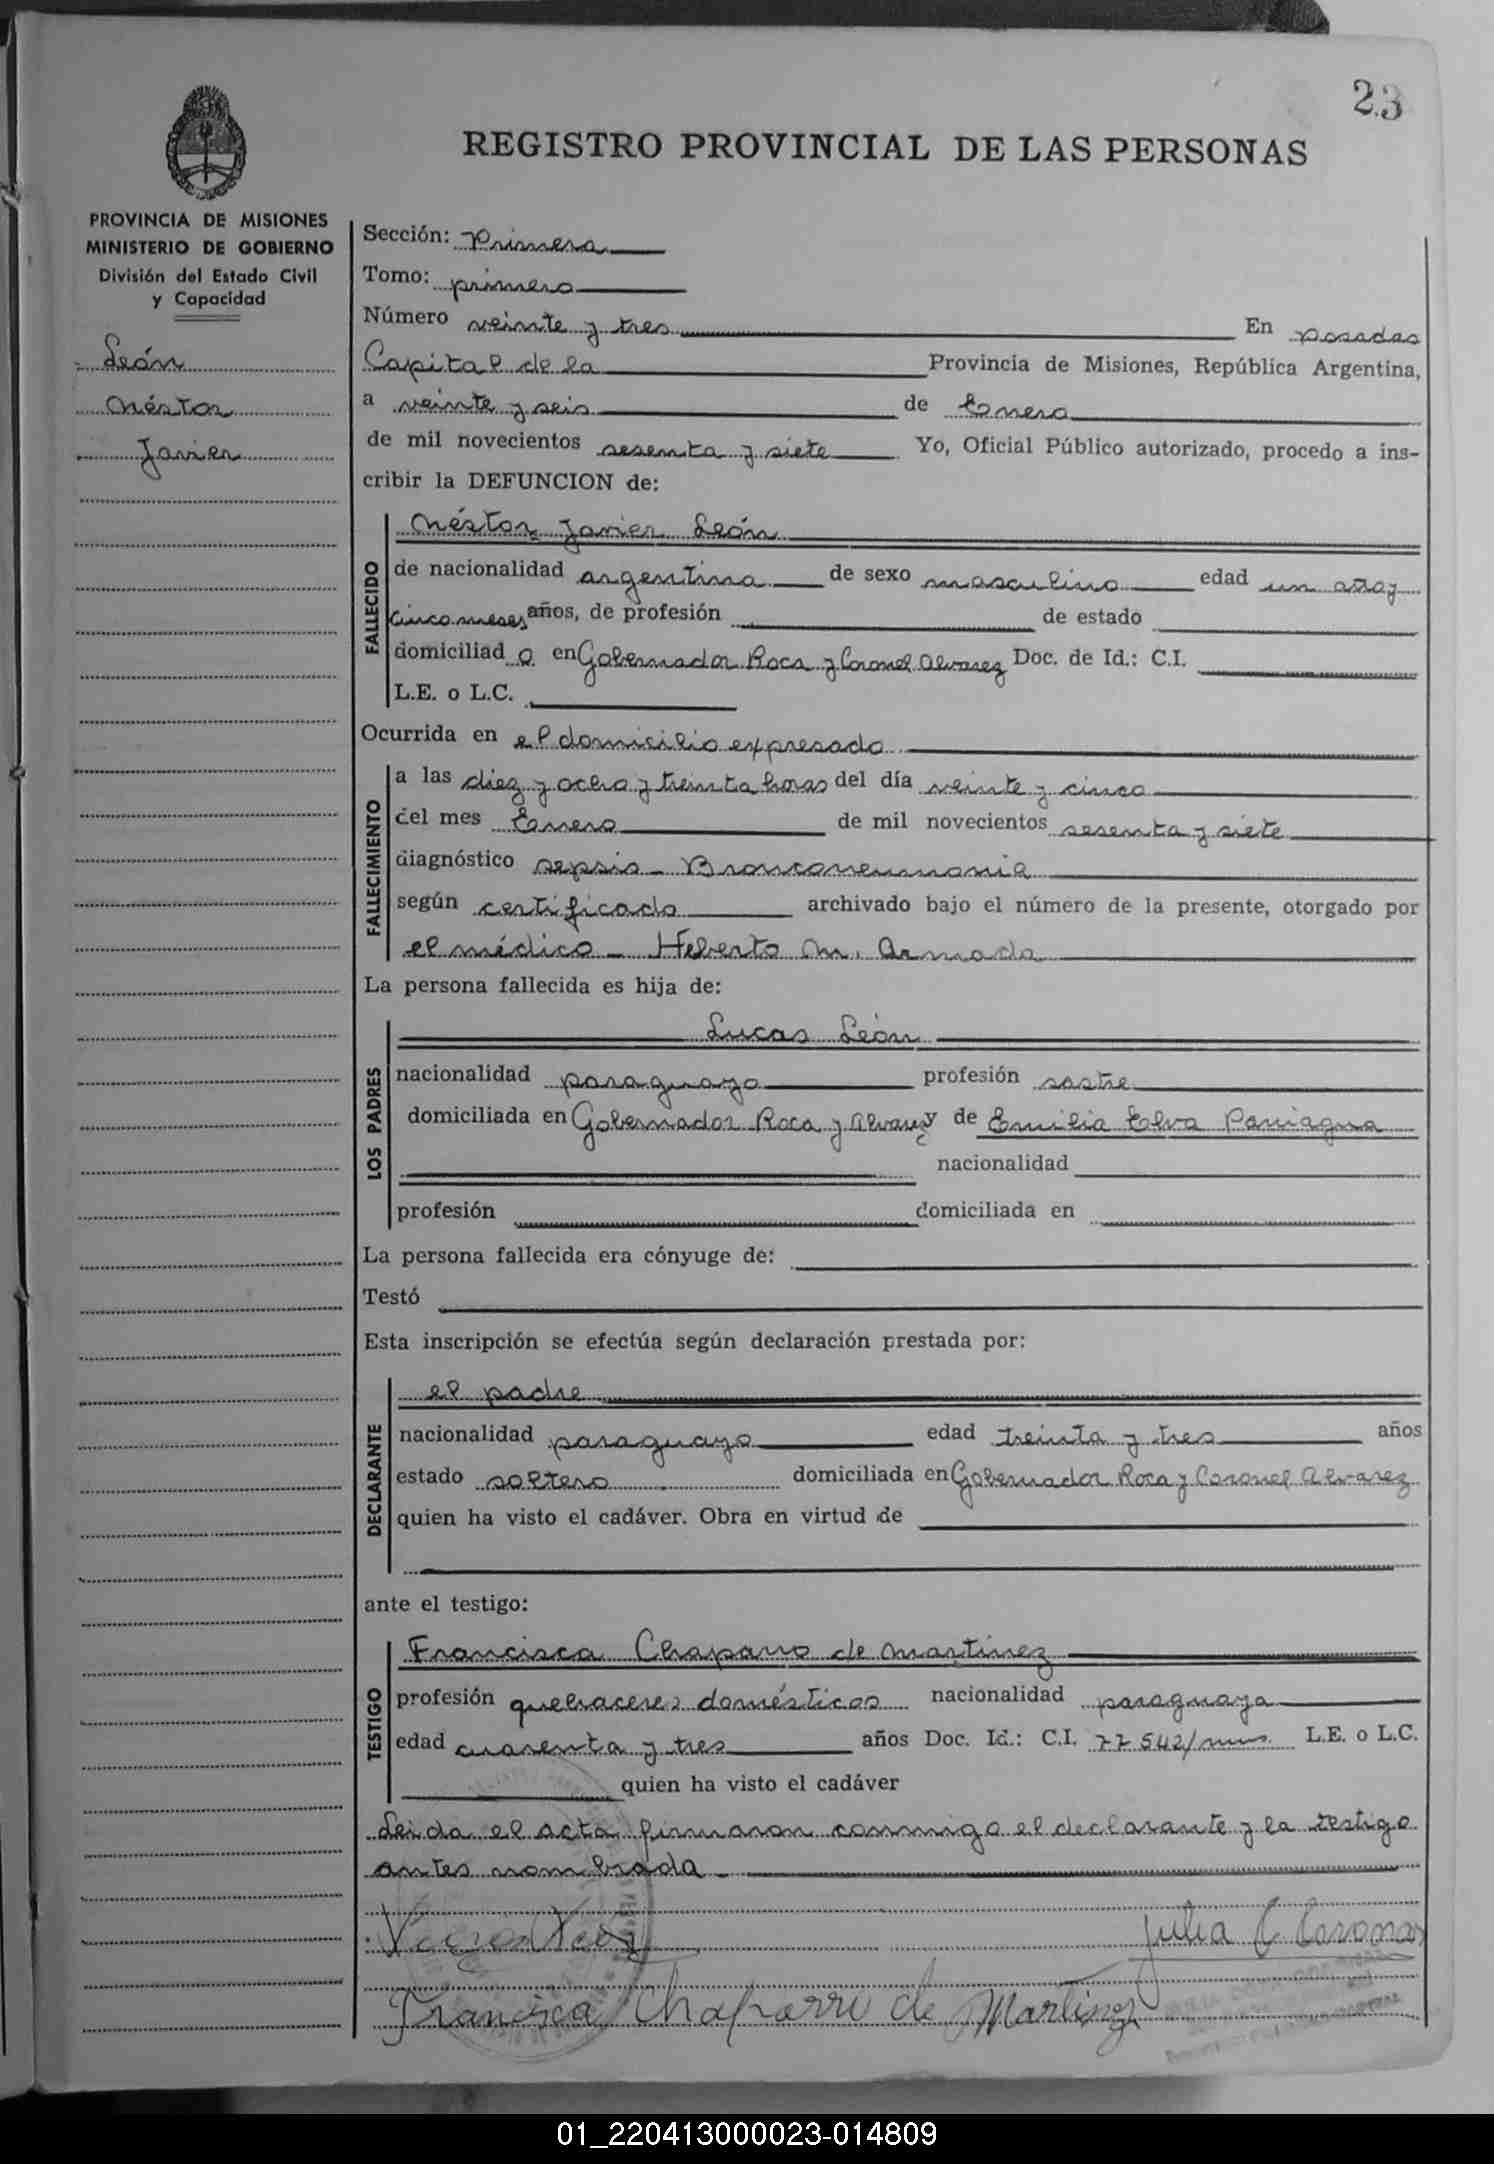 23
REGISTRO PROVINCIAL DE LAS PERSONAS
PROVINCIA DE MISIONES
MINISTERIO DE GOBIERNO
División del Estado Civil
y Capacidad
León
Néstor
Javier
Sección: Primera
Tomo: primero
Número veinte y tres En posadas
Capital de la Provincia de Misiones, República Argentina,
a veinte y seis de Enero
de mil novecientos sesenta y siete Yo, Oficial Público autorizado, procedo a ins-
cribir la DEFUNCION de:
FALLECIDO
Néstor Javier León
de nacionalidad argentina de sexo masculino edad un año y
cinco meses años, de profesión de estado
domiciliad o en Gobernador Roca y Coronel Alvarez Doc. de Id.: C.I.
L.E. o L.C.
Ocurrida en el domicilio expresado
FALLECIMIENTO
a las diez y ocho y treinta horas del día veinte y cinco
del mes Enero de mil novecientos sesenta y siete
diagnóstico sepsis - Bronconeumonia
según certificado archivado bajo el número de la presente, otorgado por
el médico - Heberto M. Armada
La persona fallecida es hija de:
LOS PADRES
Lucas León
nacionalidad paraguayo profesión sastre
domiciliada en Gobernador Roca y Alvarez y de Emilia Elva Paniagua
nacionalidad
profesión domiciliada en
La persona fallecida era cónyuge de:
Testó
Esta inscripción se efectúa según declaración prestada por:
DECLARANTE
el padre
nacionalidad paraguayo edad treinta y tres años
estado soltero domiciliada en Gobernador Roca y Coronel Alvarez
quien ha visto el cadáver. Obra en virtud de
ante el testigo:
TESTIGO
Francisca Chaparro de Martinez
profesión quehaceres domésticos nacionalidad paraguaya
edad cuarenta y tres años Doc. Id.: C.I. 77542/mns. L.E. o L.C.
quien ha visto el cadáver
Leida el acta, firmaron conmigo el declarante y la testigo
antes nombrada
Julia C. Coronas
Francisca Chaparro de Martinez
01_220413000023-014809